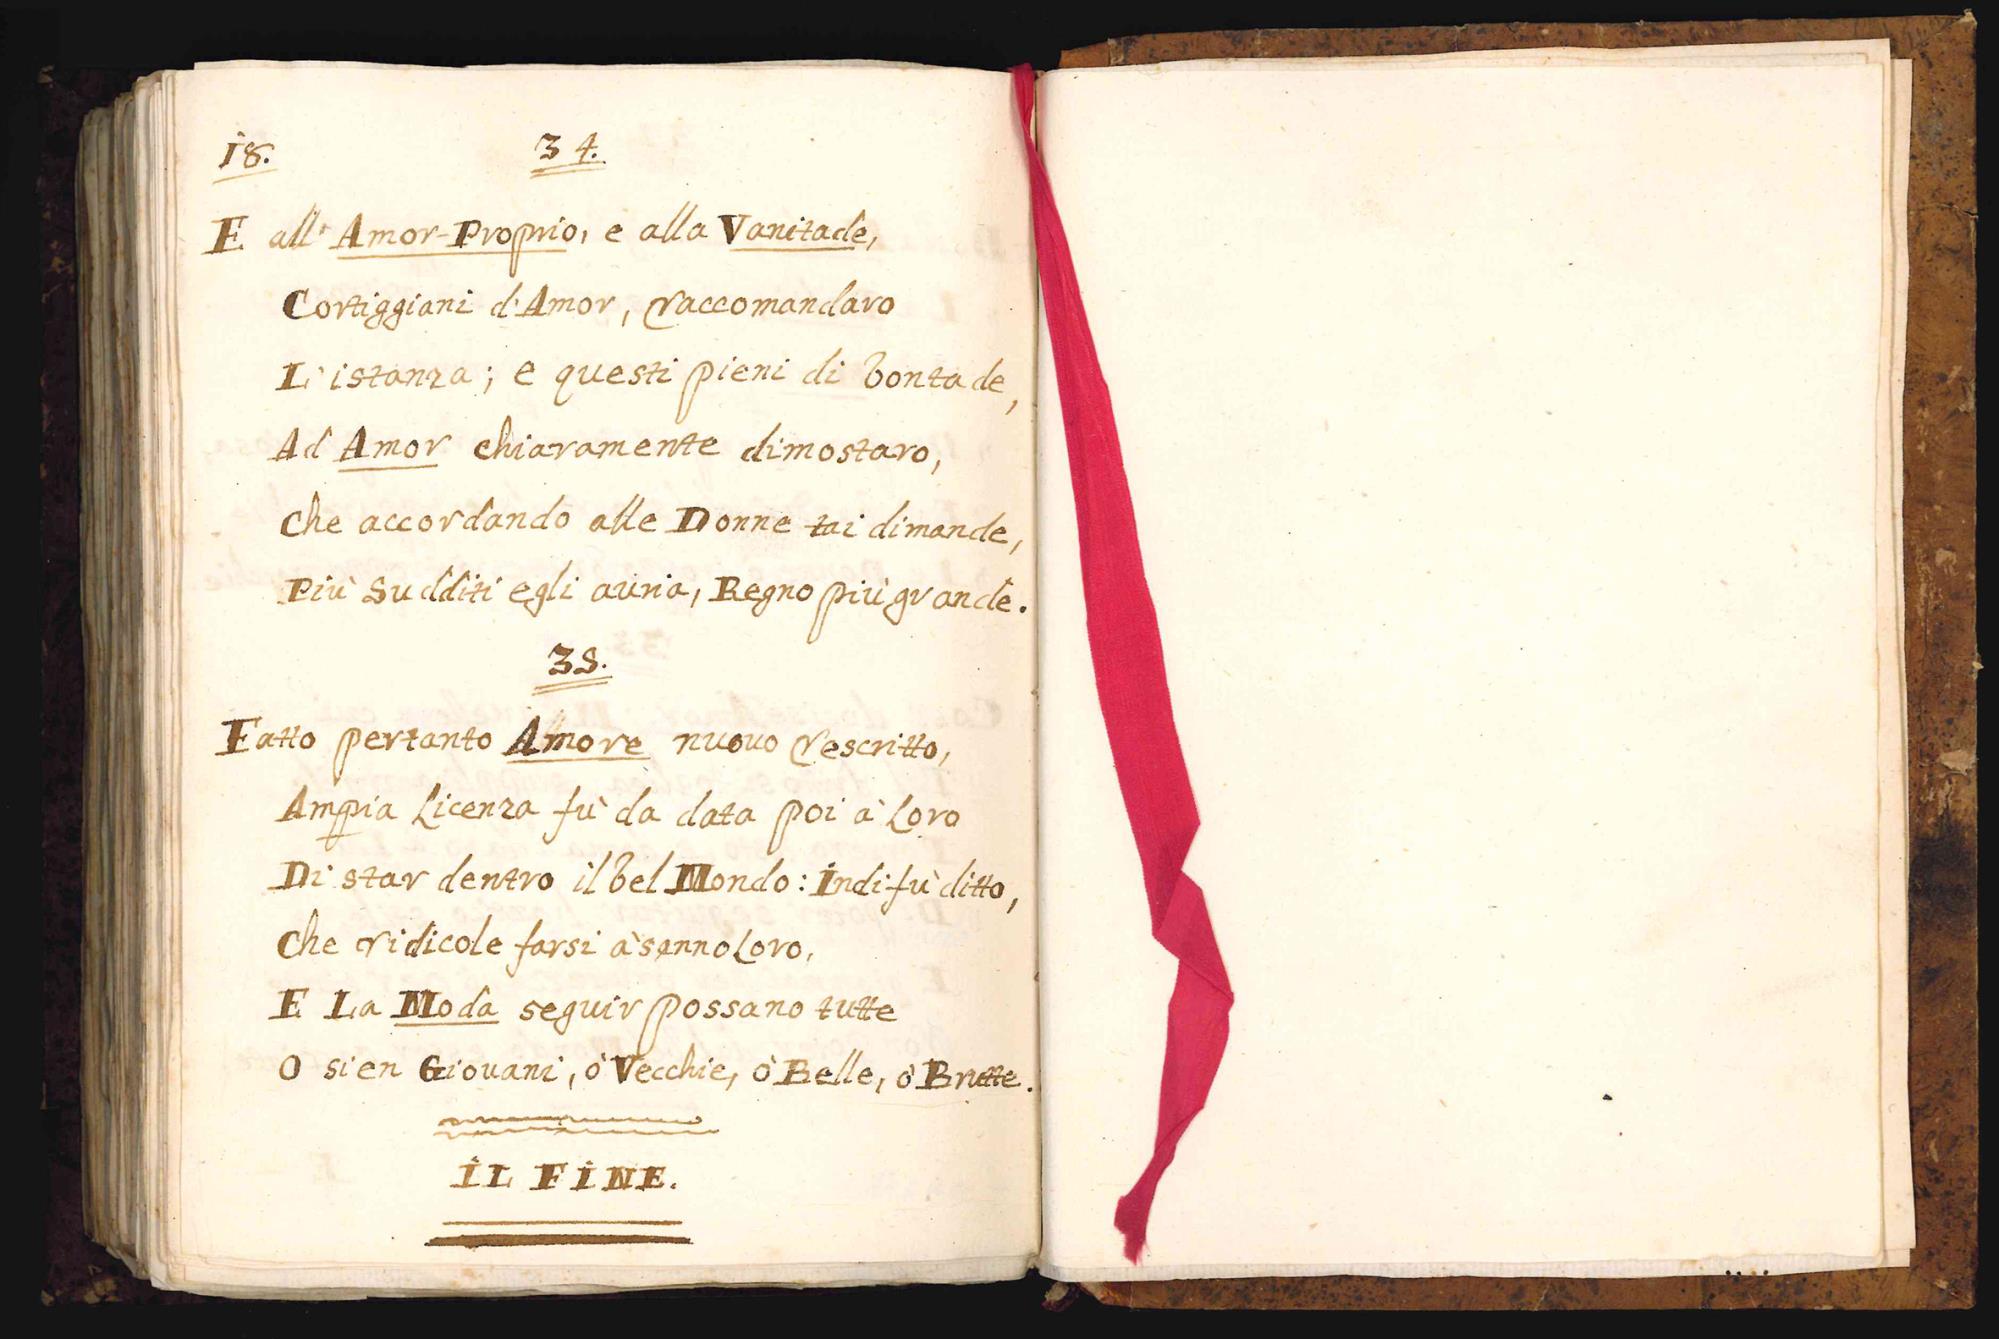 18.
34.
E all' Amor-Proprio, e alla Vanitade,
Cortiggiani d'Amor, raccomandaro
L'istanza; e questi pieni di bontade,
Ad Amor chiaramente dimostaro,
Che accordando alle Donne tai dimande,
Più Sudditi egli auria, Regno più grande.
35.
Fatto pertanto Amore nuovo rescritto,
Ampia Licenza fù da data poi à Loro
Di star dentro il bel Mondo: indi fù ditto,
Che ridicole farsi à senno Loro,
E La Moda seguir possano tutte
O sien Giovani, ò Vecchie, ò Belle, ò Brutte.
iL FiNE.